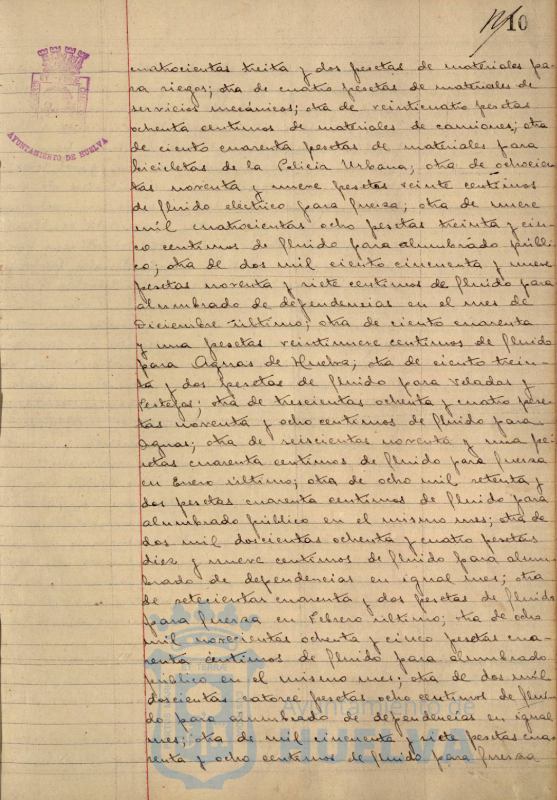 10
AYUNTAMIENTO DE HUELVA
cuatrocientas treita y dos pesetas de materiales pa-
ra riegos; otra de cuatro pesetas de materiales de
servicios mecánicos; otra de veinticuatro pesetas
ochenta centimos de materiales de camiones; otra
de ciento cuarenta pesetas de materiales para
bicicletas de la Policia Urbana; otra de ochocien-
tas noventa y nueve pesetas veinte centimos
de fluido eléctrico para fuerza; otra de nueve
mil cuatrocientas ocho pesetas treinta y cin-
co centimos de fluido para alumbrado públi-
co; otra de dos mil ciento cincuenta y nueve
pesetas noventa y siete centimos de fluido para
alumbrado de dependencias en el mes de
Diciembre último; otra de ciento cuarenta
y una pesetas veintinueve centimos de fluido
para Aguas de Huelva; otra de ciento trein-
ta y dos pesetas de fluido para Veladas y
Festejos; otra de trescientas ochenta y cuatro pese-
tas noventa y ocho centimos de fluido para
Aguas; otra de seiscientas noventa y una pe-
setas cuarenta centimos de fluido para fuerza
en Enero último; otra de ocho mil setenta y
dos pesetas cuarenta centimos de fluido para
alumbrado público en el mismo mes; otra de
dos mil doscientas ochenta y cuatro pesetas
diez y nueve centimos de fluido para alum-
brado de dependencias en igual mes; otra
de setecientas cuarenta y dos pesetas de fluido
para fuerza en Febrero último; otra de ocho
mil novecientas ochenta y cinco pesetas cua-
renta centimos de fluido para alumbrado
público en el mismo mes; otra de dos mil
doscientas catorce pesetas ocho centimos de flui-
do para alumbrado de dependencias en igual
mes; otra de mil cincuenta y siete pesetas cua-
renta y ocho centimos de fluido para fuerza
Ayuntamiento de
HUELVA